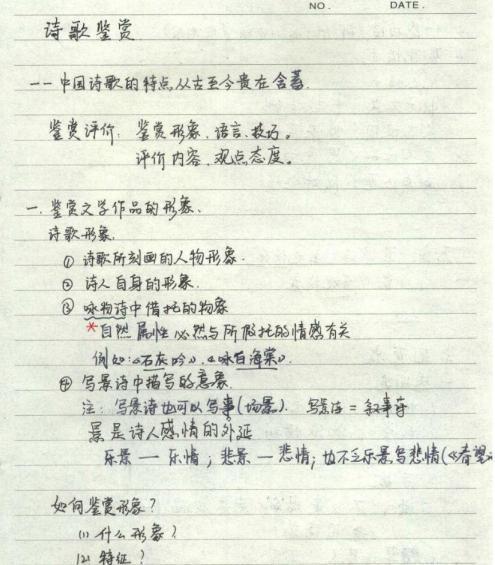 NO. DATE.
诗歌鉴赏
——中国诗歌的特点,从古至今贵在含蓄.
鉴赏评价: 鉴赏形象、语言、技巧。
评价内容、观点态度。
一. 鉴赏文学作品的形象.
诗歌形象.
① 诗歌所刻画的人物形象.
② 诗人自身的形象.
③ 咏物诗中借托的物象
*自然属性必然与所假托的情感有关
例如:《石灰吟》.《咏白海棠》.
④ 写景诗中描写的意象.
注: 写景诗也可以写事(场景). 写景诗 = 叙事诗
景是诗人感情的外延
乐景 — 乐情; 悲景 — 悲情; 也不乏乐景写悲情(《春望》
如何鉴赏形象?
(1) 什么形象?
(2) 特征?